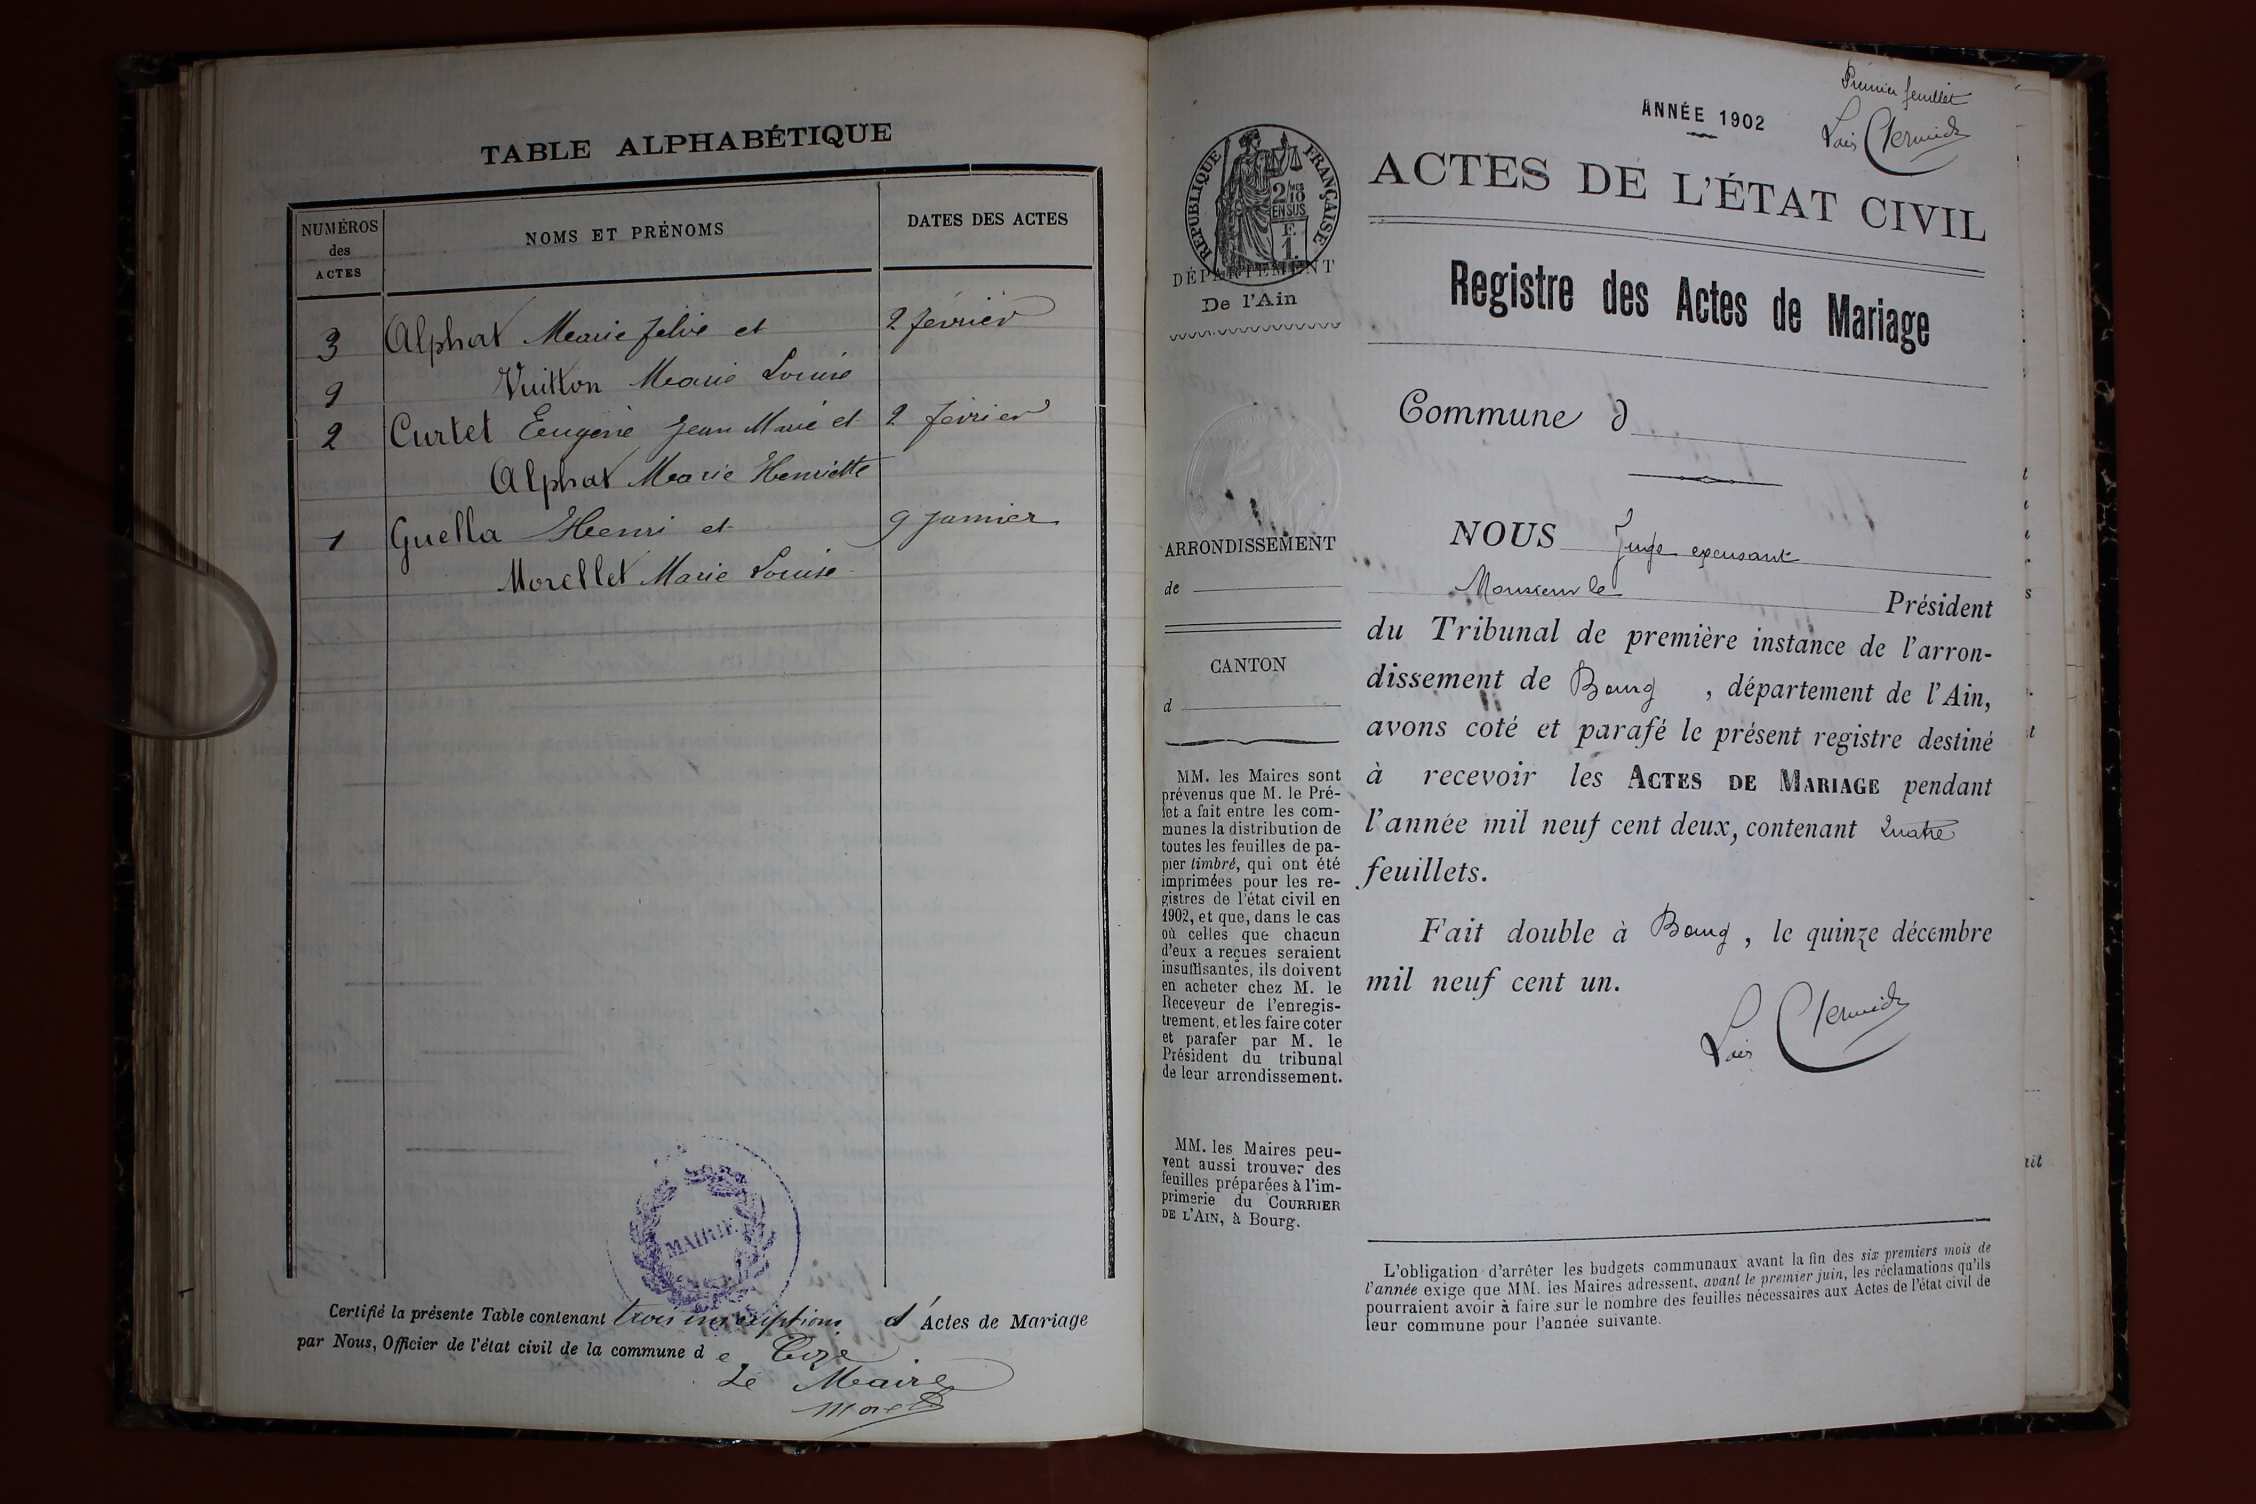 TABLE ALPHABÉTIQUE
NUMÉROS des ACTES
NOMS ET PRÉNOMS
DATES DES ACTES
3 Alphat Marie Félix et 2 février
9 Vuitton Marie Louise
2 Curtet Eugène Jean Marie et 2 février
Alphat Marie Henriette
1 Guella Henri et 9 janvier
Morellet Marie Louise
MAIRIE
Certifié la présente Table contenant trois inscriptions d'Actes de Mariage
par Nous, Officier de l'état civil de la commune de Cize
Le Maire
Morel
Premier feuillet
ANNÉE 1902
RÉPUBLIQUE FRANÇAISE
2/10
EN SUS
F.
1.
ACTES DE L'ÉTAT CIVIL
DÉPARTEMENT
De l'Ain
Registre des Actes de Mariage
Commune d
ARRONDISSEMENT
de
CANTON
d
NOUS Juge
Monsieur le Président
du Tribunal de première instance de l'arron-
dissement de Bourg , département de l'Ain,
avons coté et parafé le présent registre destiné
à recevoir les ACTES DE MARIAGE pendant
l'année mil neuf cent deux, contenant quatre
feuillets.
Fait double à Bourg , le quinze décembre
mil neuf cent un.
MM. les Maires sont
prévenus que M. le Pré-
fet a fait entre les com-
munes la distribution de
toutes les feuilles de pa-
pier timbré, qui ont été
imprimées pour les re-
gistres de l'état civil en
1902, et que, dans le cas
où celles que chacun
d'eux a reçues seraient
insuffisantes, ils doivent
en acheter chez M. le
Receveur de l'enregis-
trement, et les faire coter
et parafer par M. le
Président du tribunal
de leur arrondissement.
MM. les Maires peu-
vent aussi trouver des
feuilles préparées à l'im-
primerie du COURRIER
DE L'AIN, à Bourg.
L'obligation d'arrêter les budgets communaux avant la fin des six premiers mois de
l'année exige que MM. les Maires adressent, avant le premier juin, les réclamations qu'ils
pourraient avoir à faire sur le nombre des feuilles nécessaires aux Actes de l'état civil de
leur commune pour l'année suivante.